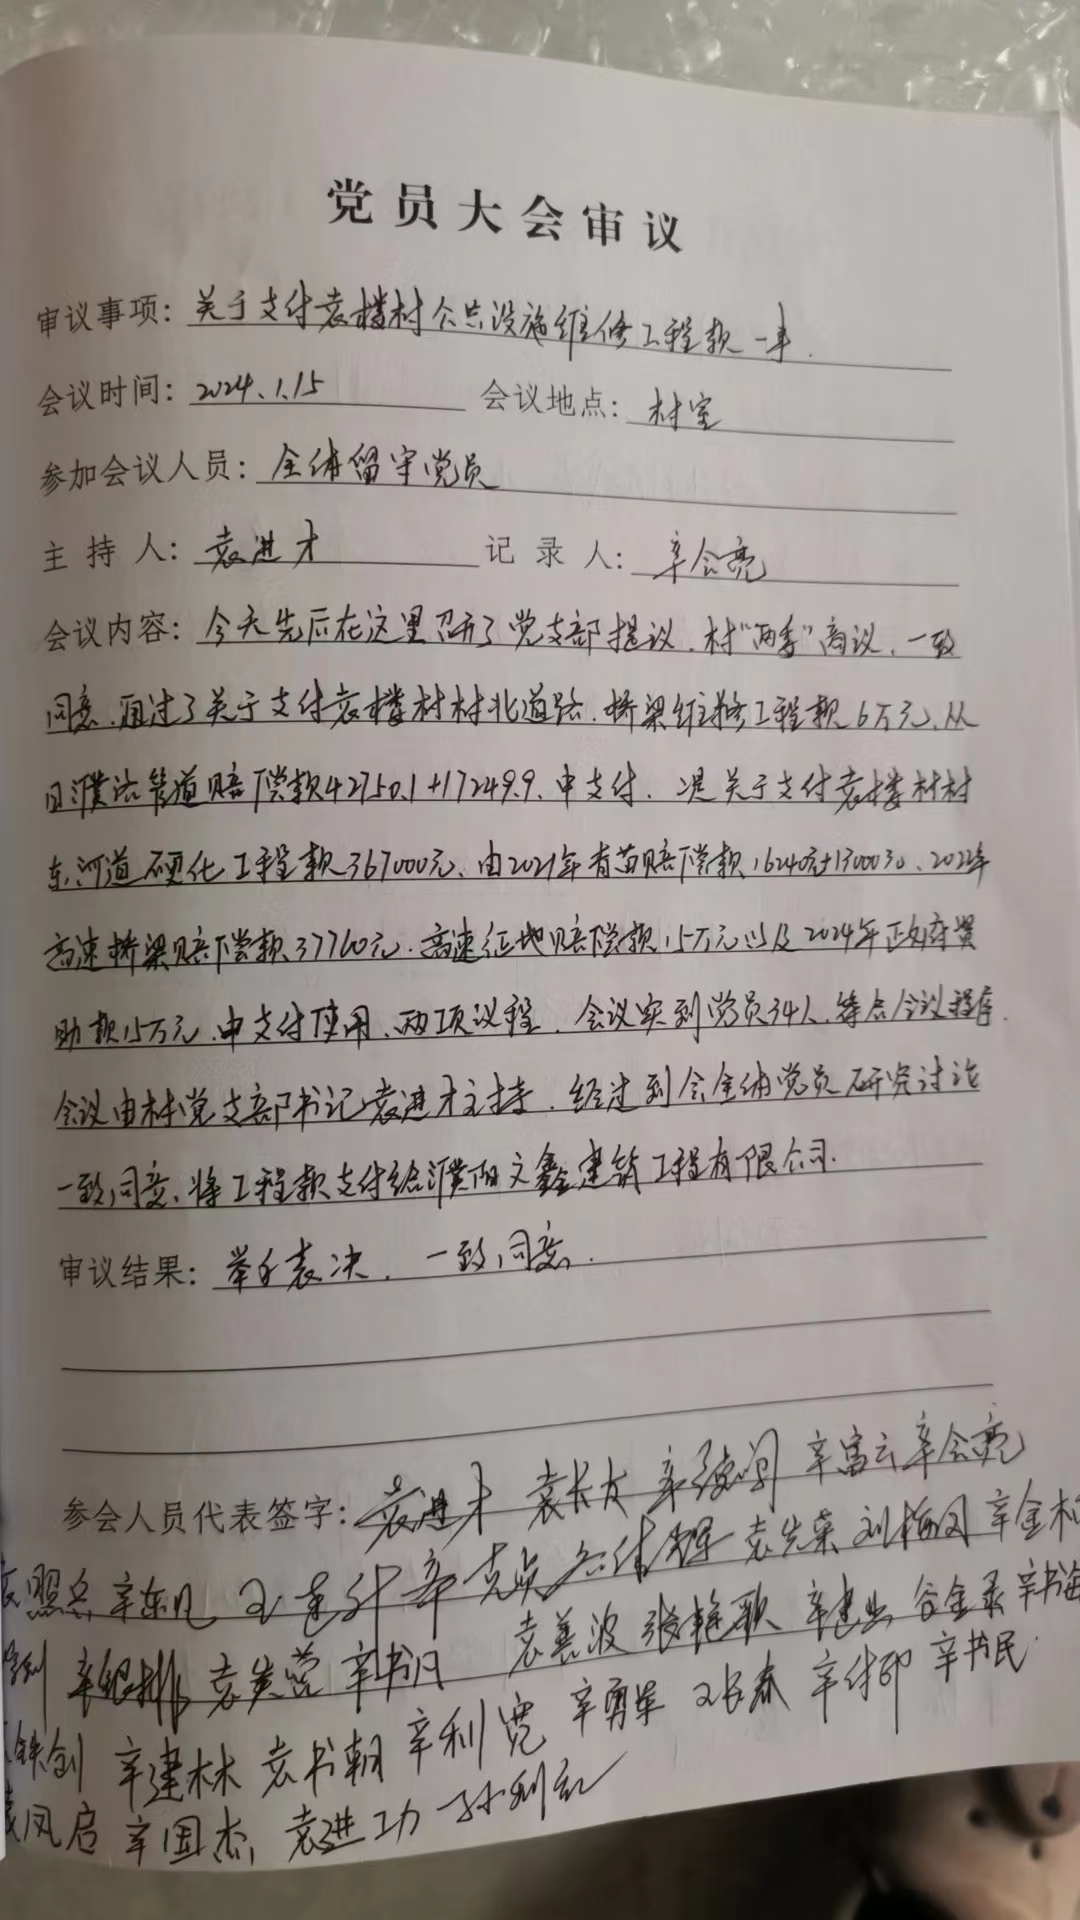 党员大会审议
审议事项：关于支付袁楼村公共设施维修工程款一事.
会议时间：2024.1.15 会议地点：村室
参加会议人员：全体留守党员
主持人：袁进才 记录人：辛会亮
会议内容：今天先后在这里召开了党支部提议、村“两委”商议，一致
同意、通过了关于支付袁楼村村北道路、桥梁维修工程款6万元、从
管道赔偿款42750.1+17249.9、中支付、关于支付袁楼村村
东河道硬化工程款367000元、由2021年青苗赔偿款16240元+13000元、2022年
高速桥梁赔偿款37760元、高速征地赔偿款15万元以及2024年政府奖
助款15万元、中支付使用、两项议程，会议实到党员34人，符合会议程序.
会议由村党支部书记袁进才主持，经过到会全体党员研究讨论
一致同意、将工程款支付给濮阳文鑫建筑工程有限公司.
审议结果：举手表决、一致同意.
参会人员代表签字：袁进才 袁长友 辛富云 辛会亮
照兵 辛东凡 袁先荣 刘梅风 辛金
辛银排 辛书凡 袁善波 张艳歌 辛建业 谷金录 辛书海
铁剑 辛建林 袁书朝 辛利宽 辛勇军 王长春 辛付印 辛书民
凤启 辛国杰 袁进功 孙利红